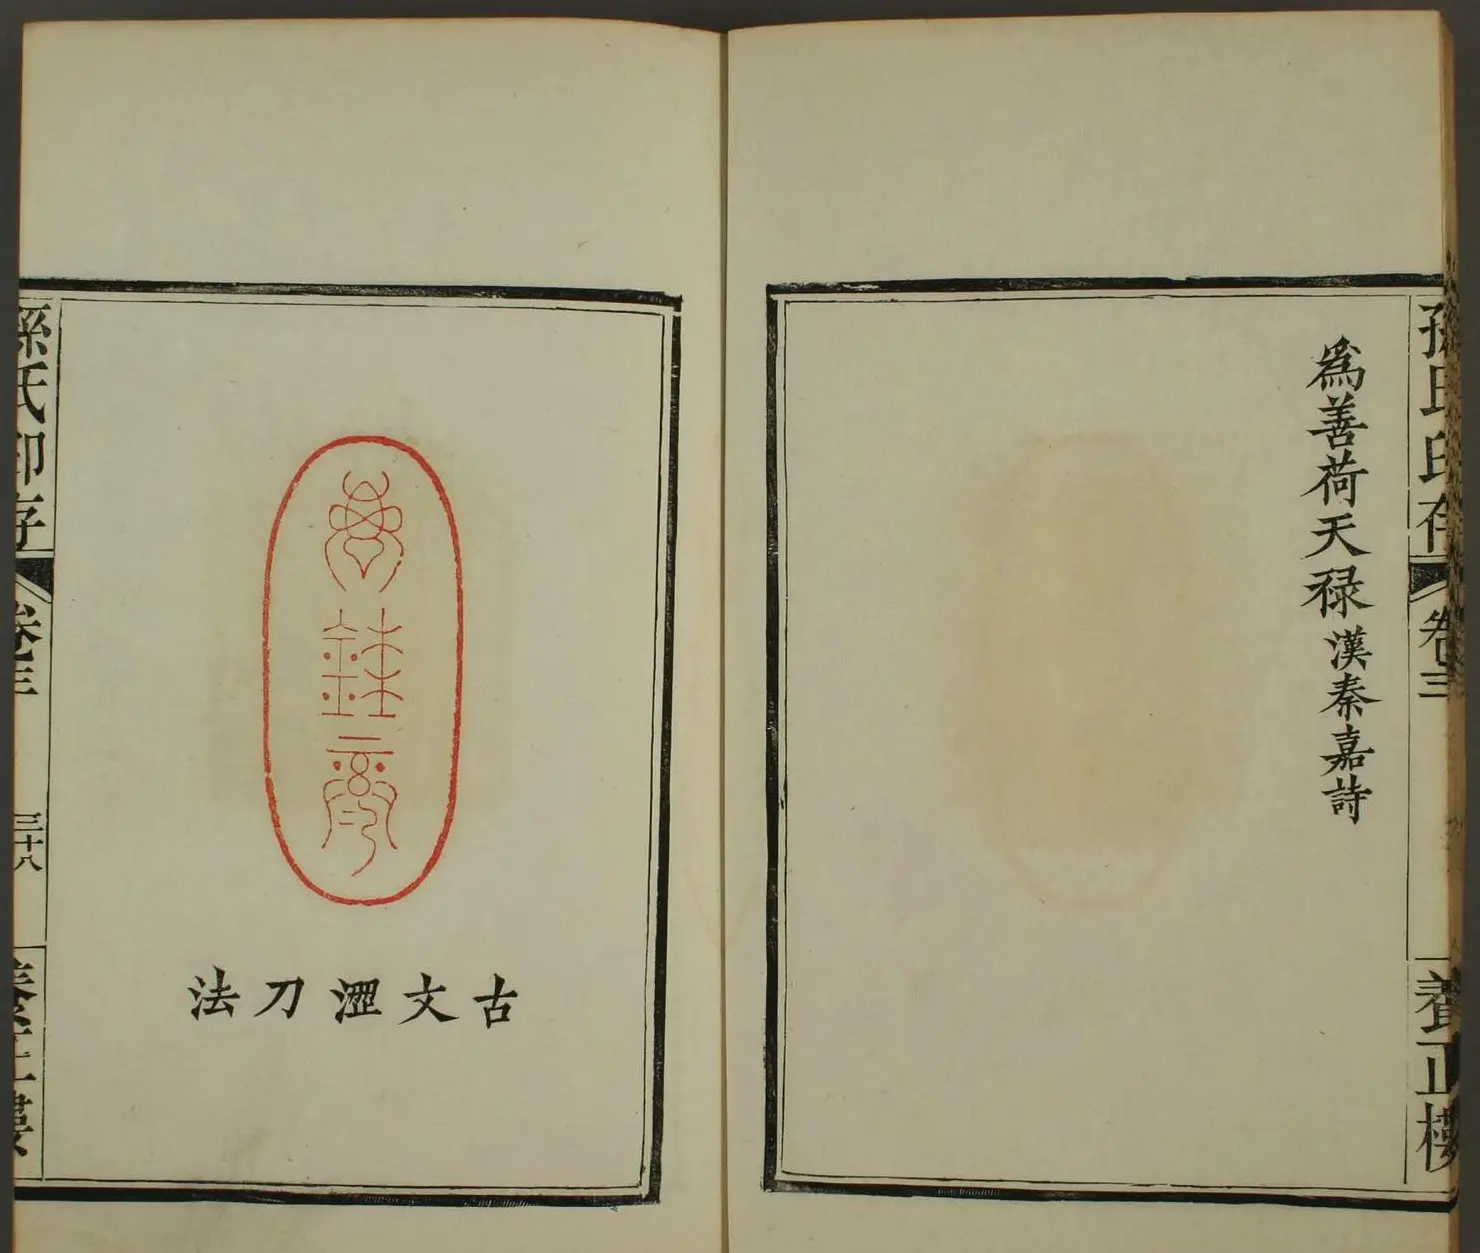 孫氏印存
卷三
養正樓
爲善荷天祿 漢秦嘉詩
古文澀刀法
孫氏印存
卷三
三十八
養正樓